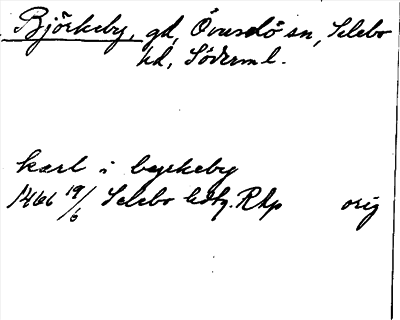 Björkeby, gd, Överselö sn, Selebo
hd, Söderml.
karl i byrkeby
1466 19/6 Selebo hdtg. Rhp orig